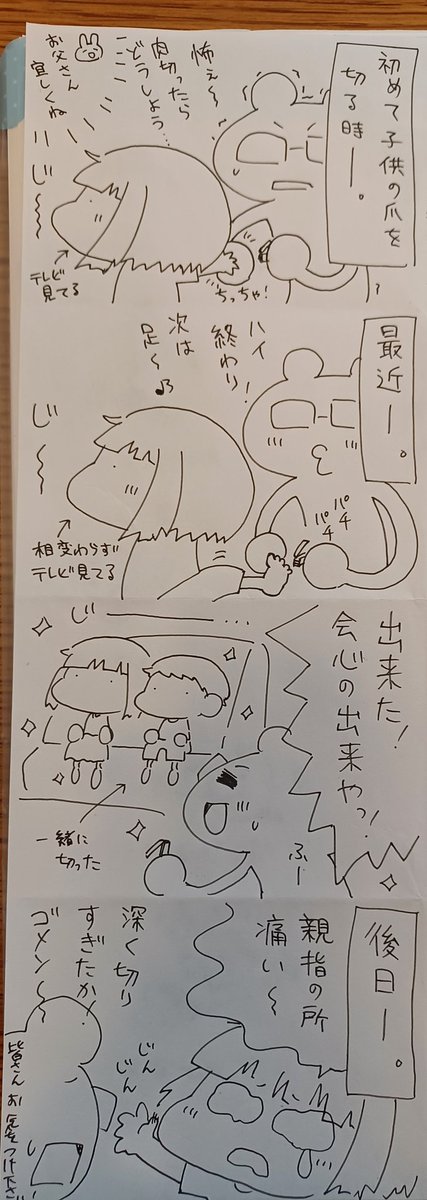 初めて子供の爪を
切る時ー。
怖ぇ〜
肉切ったら
どうしよう…
お父さん
宜しくね
じ〜〜
テレビ
見てる
ちっちゃ!
最近ー。
ハイ!
終わり
次は
足〜♪
じ〜〜
パチ
パチ
相変わらず
テレビ見てる
出来た!
会心の出来やっ!
じ…
ふー
一緒に
切った
後日ー。
親指の所
痛い〜
深く切り
すぎたか
ゴメン〜
じん
じん
皆さんお気をつけ下さい